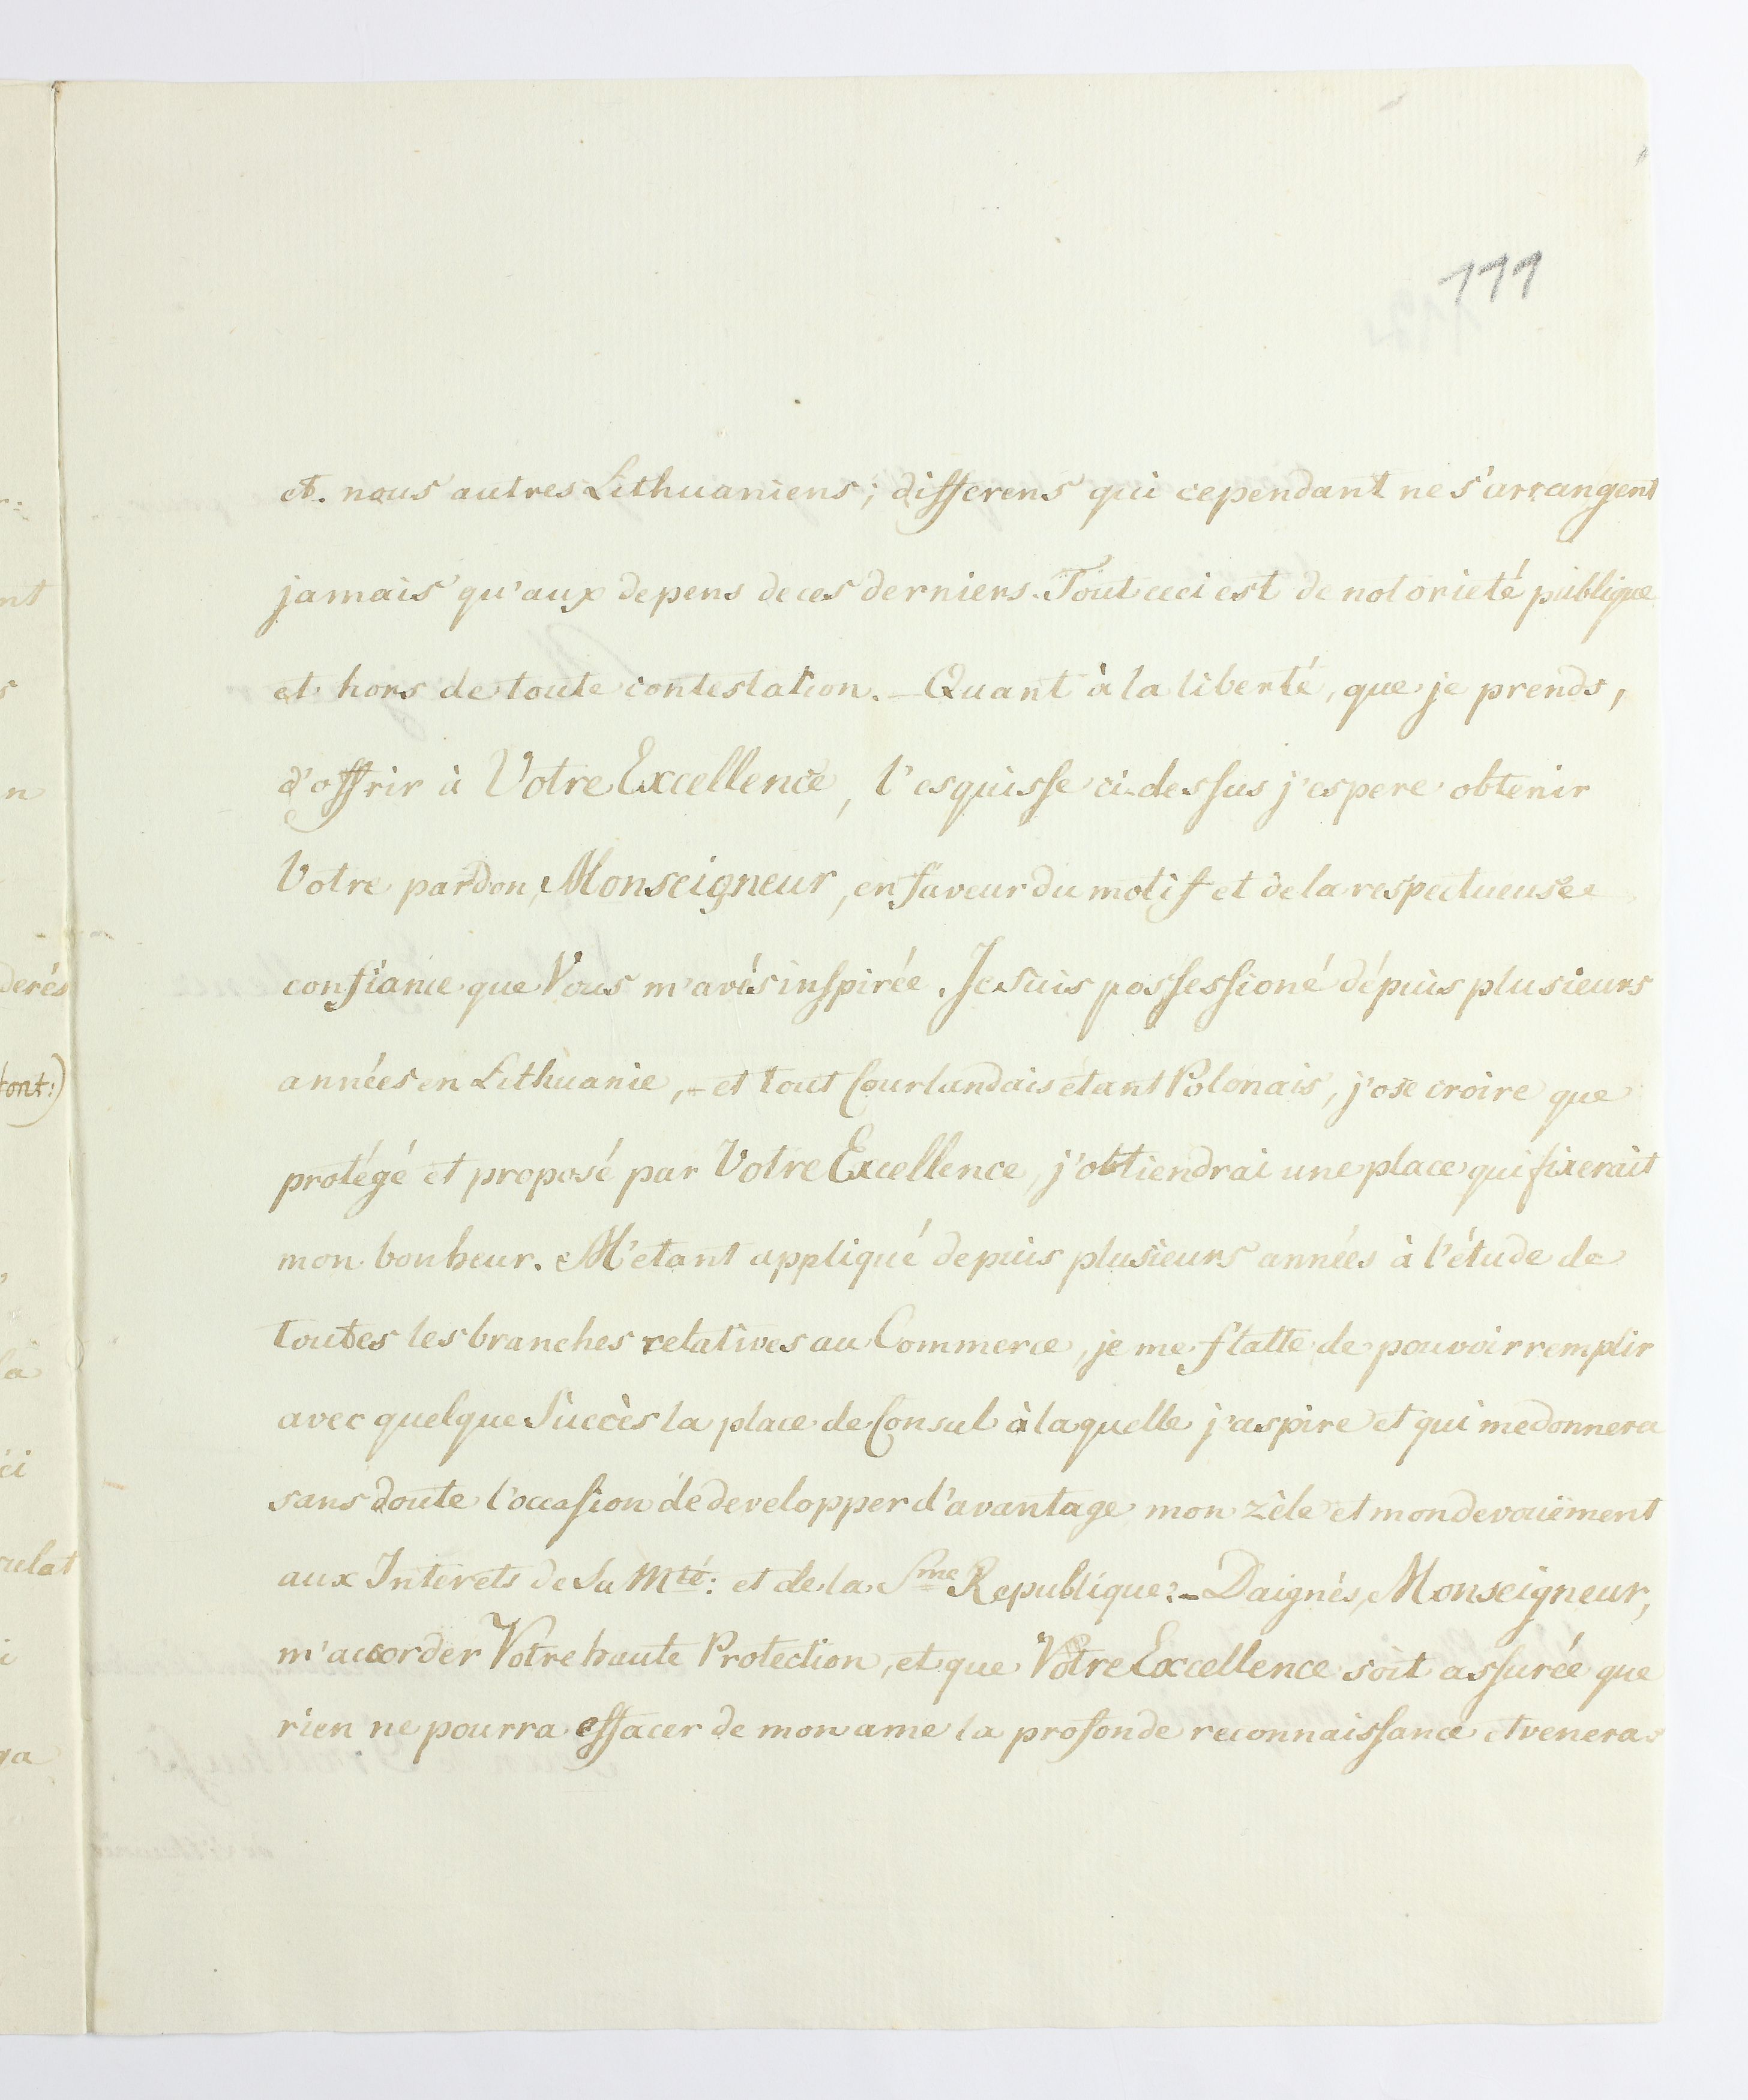 111
et nous autres Lithuaniens; differens qui cependant ne s'arrangent
jamais qu'aux depens de ces derniers. Tout ceci est de notorieté publique
et hors de toute contestation. _ Quant à la liberté, que je prends,
d'offrir à Votre Excellence, l'esquisse ci-dessus j'espere obtenir
Votre pardon, Monseigneur, en faveur du motif et de la respectueuse
confiance que Vous m'avés inspirée. Je suis possessioné dépuis plusieurs
années en Lithuanie, - et tout Courlandais étant Polonais, j'ose croire que
protégé et proposé par Votre Excellence, j'obtiendrai une place qui fixerait
mon bonheur. M'etant appliqué depuis plusieurs années à l'étude de
toutes les branches relatives au Commerce, je me flatte de pouvoir remplir
avec quelque Succès la place de Consul à laquelle j'aspire et qui me donnera
sans doute l'occasion de developper d'avantage mon zèle et mon devouëment
aux Interets de Sa Mté: et de la Sme Republique: - Daignés, Monseigneur,
m'accorder Votre haute Protection, et que Votre Excellence soit assurée que
rien ne pourra effacer de mon ame la profonde reconnaissance et venera-
nt
s
n
derés
tont:)
la
ci
sulat
i
ga